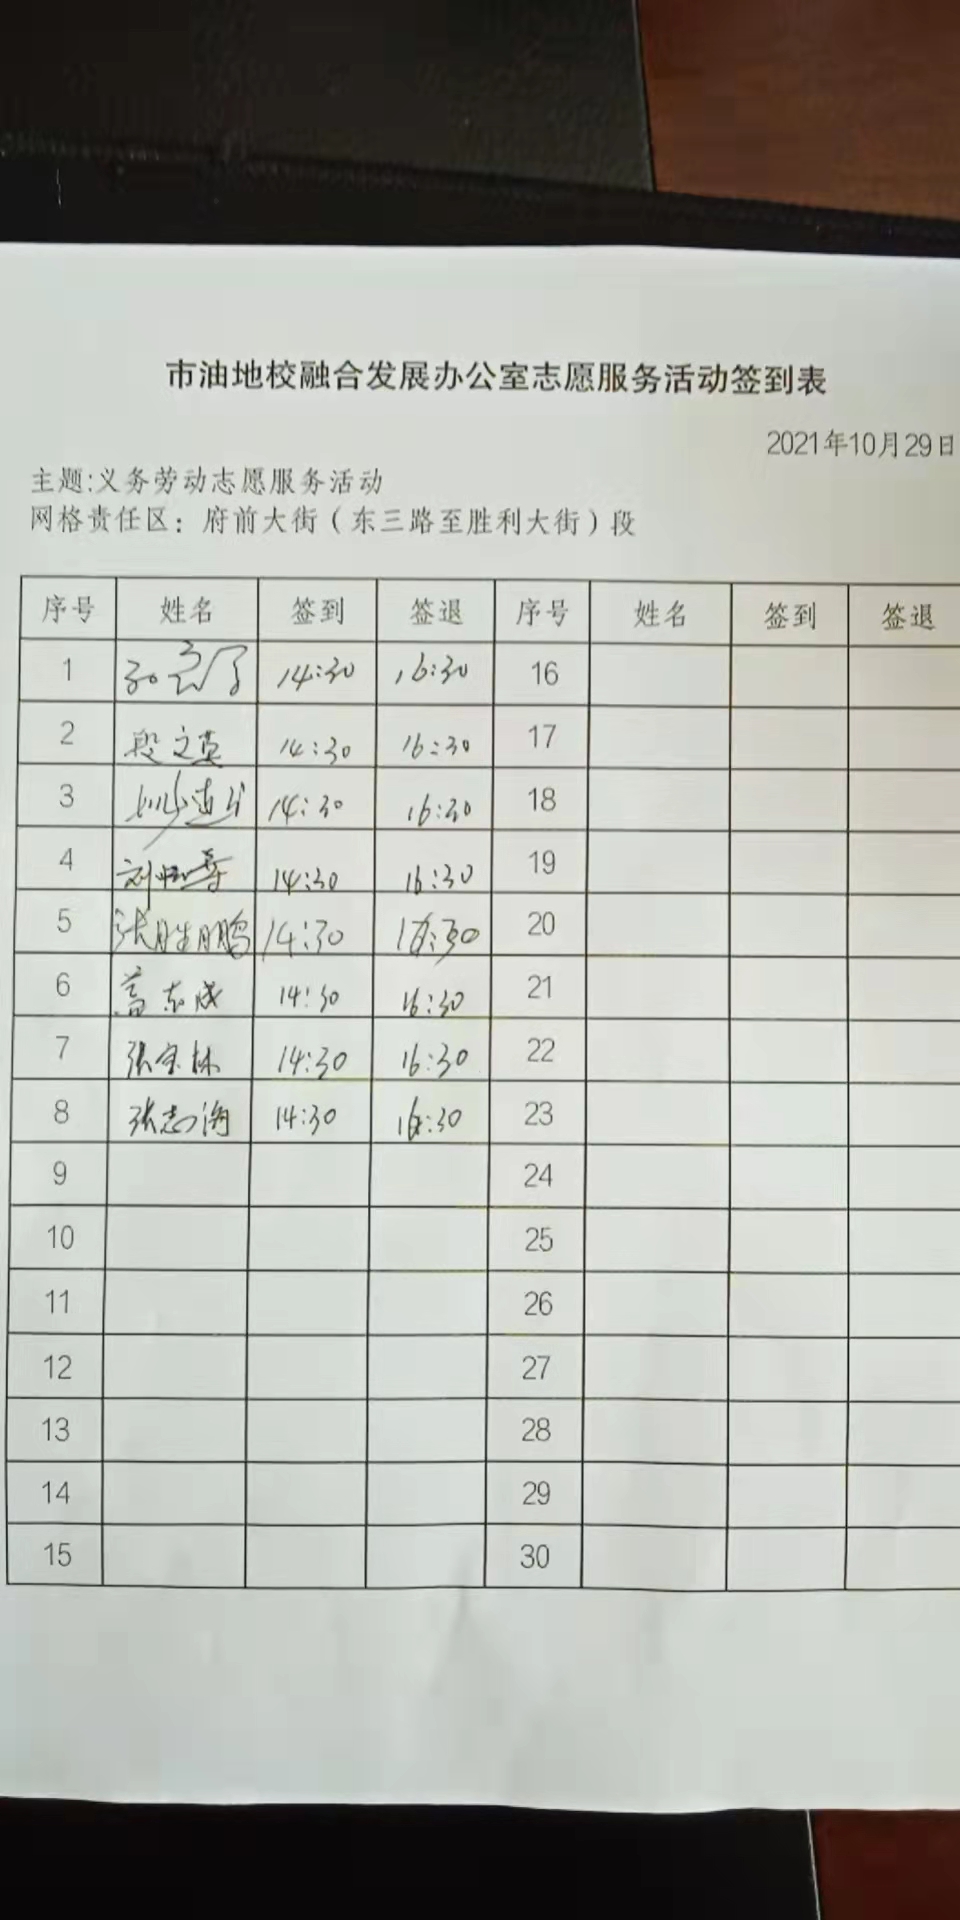 市油地校融合发展办公室志愿服务活动签到表
2021年10月29日
主题:义务劳动志愿服务活动
网格责任区：府前大街（东三路至胜利大街）段
序号 姓名 签到 签退 序号 姓名 签到 签退
1 14:30 16:30 16
2 段文英 14:30 16:30 17
3 14:30 16:30 18
4 14:30 16:30 19
5 张胜鹏 14:30 16:30 20
6 盖志成 14:30 16:30 21
7 张宝林 14:30 16:30 22
8 张志海 14:30 16:30 23
9 24
10 25
11 26
12 27
13 28
14 29
15 30